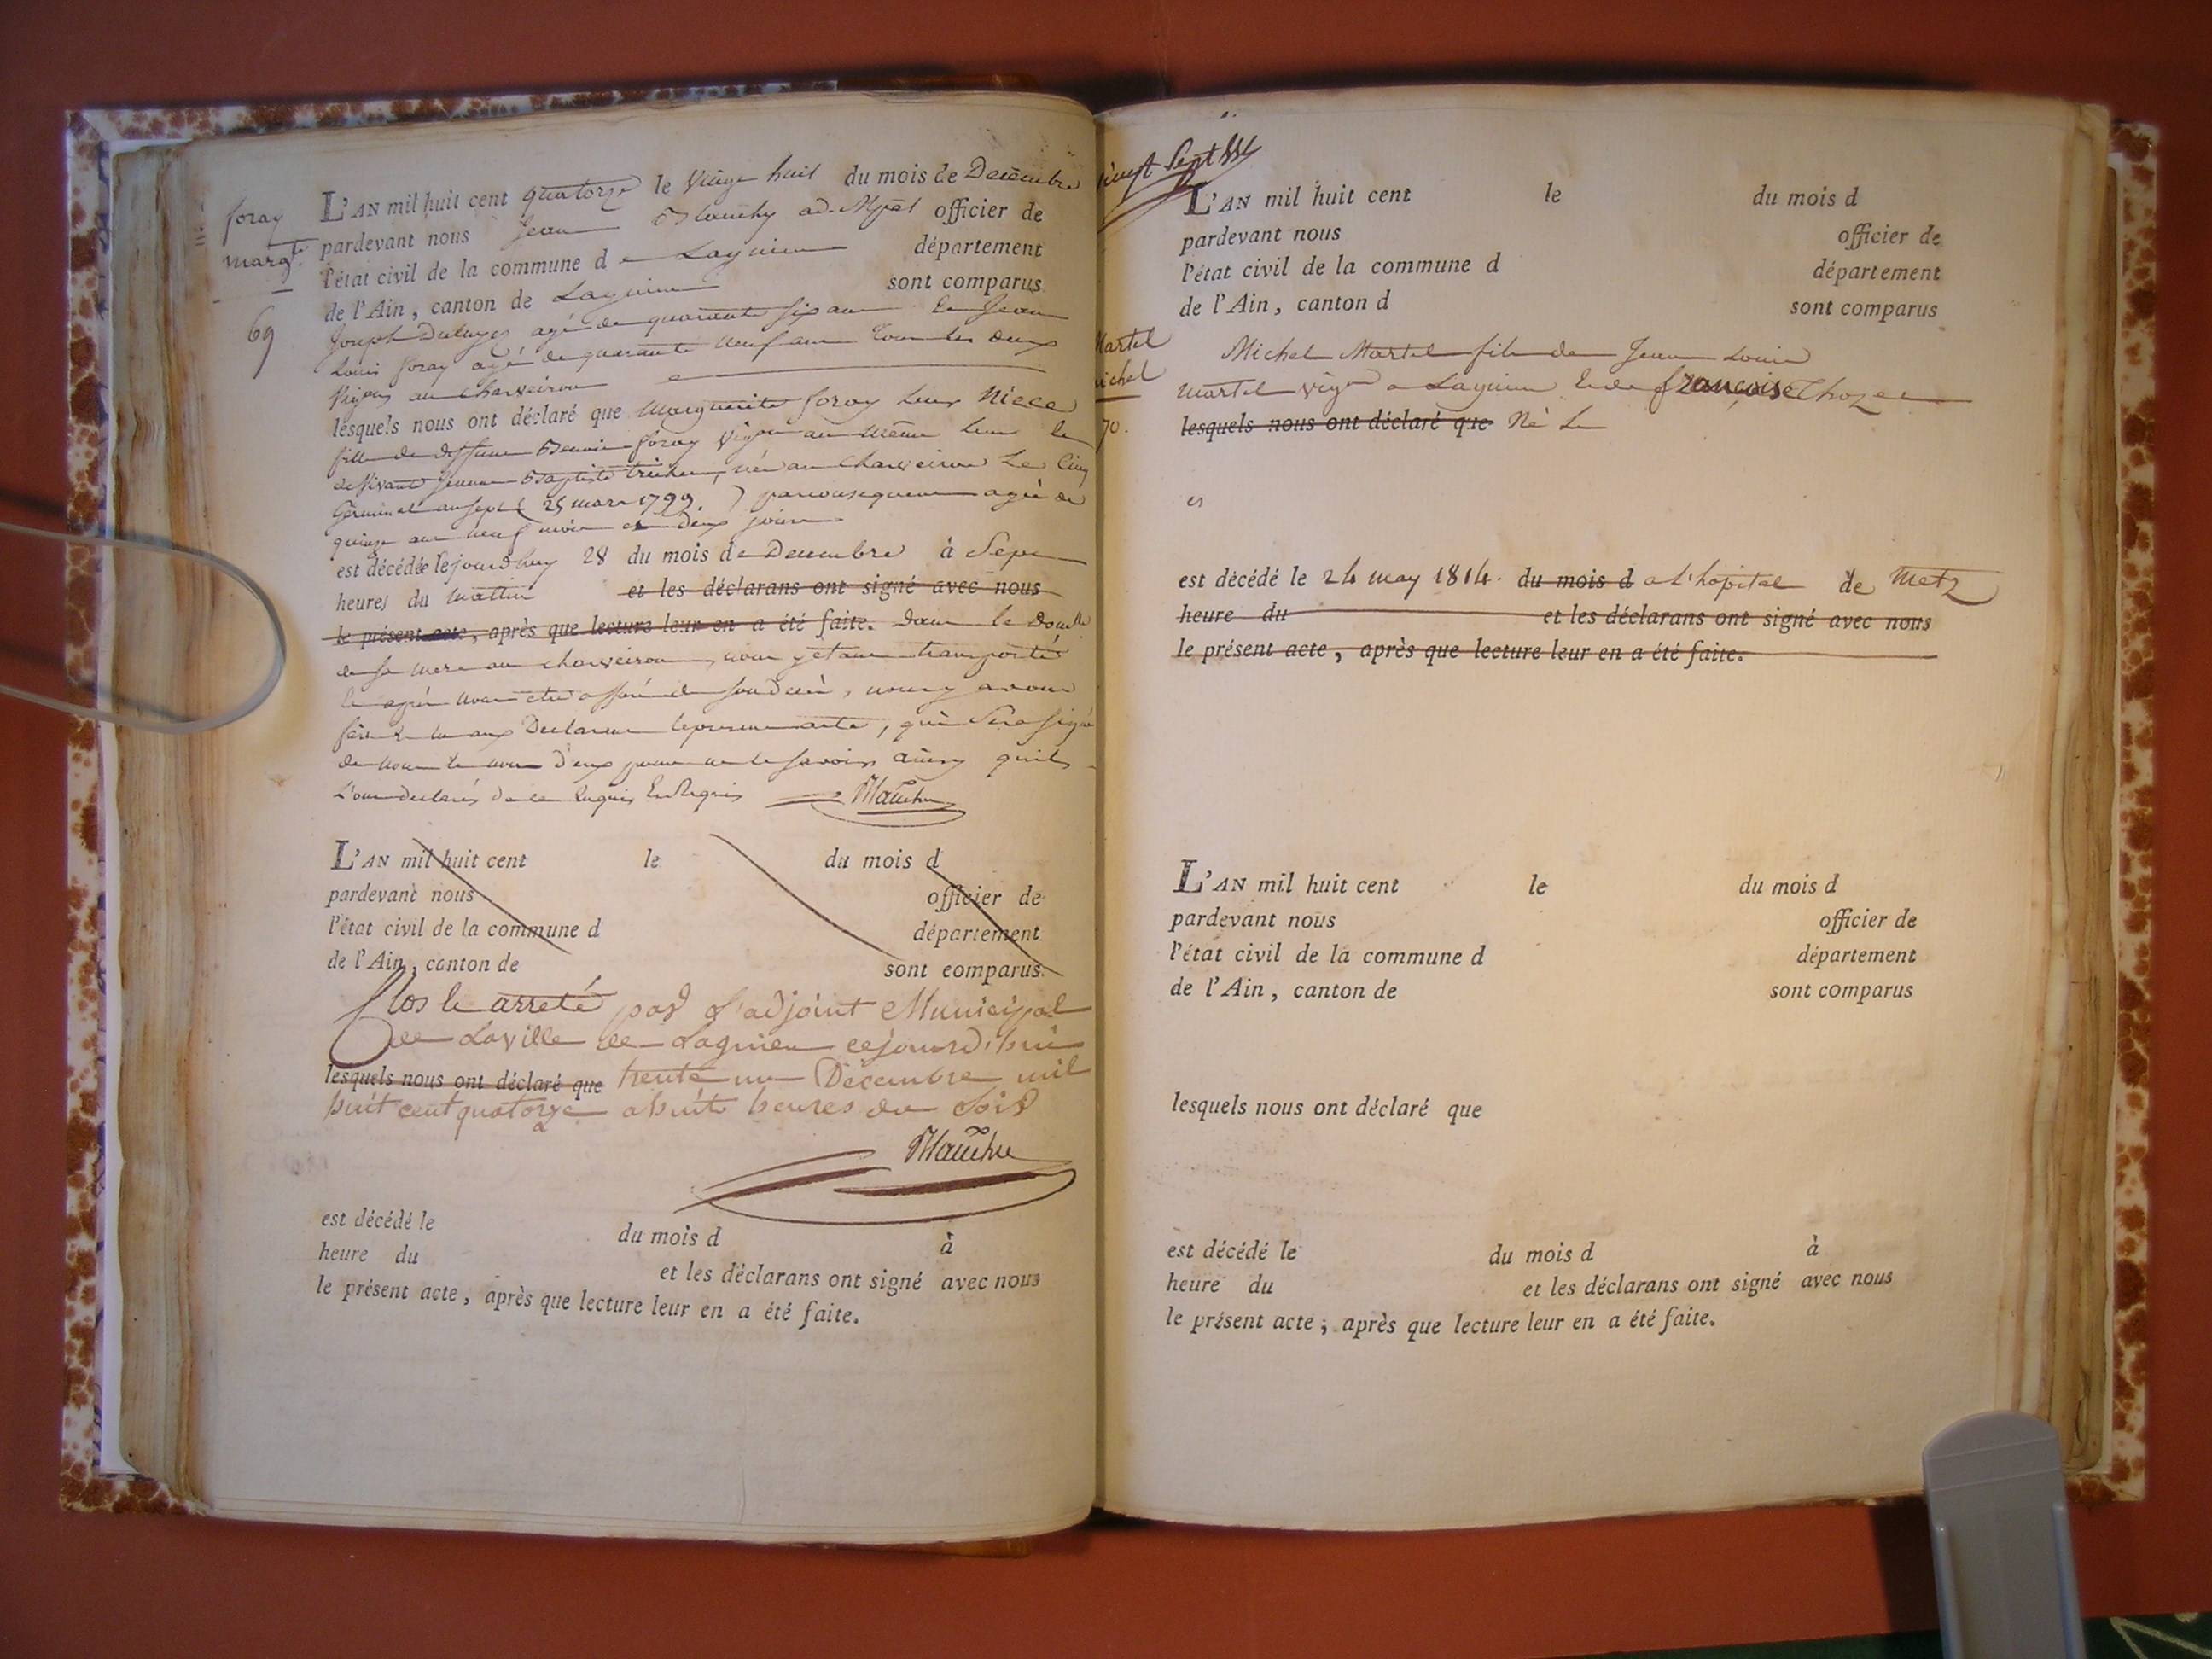 foray
marg.te
69
L'AN mil huit cent quatorze le Vingt huit du mois de Decembre
pardevant nous Jean officier de
l'état civil de la commune de Lagnieu département
de l'Ain, canton de Lagnieu sont comparus
Joseph agé de quarante six ans Et Jean
Louis foray agé de quarante neuf ans tous les deux
au Charveiron
lesquels nous ont déclaré que Marguerite foray leur Niéce
fille de deffunt Benoit foray au même lieu
de Vivante Jeanne Baptiste, née au Charveiron Le Cinq
Germinal an sept (25 mars 1799.) par consequent agée de
quinze ans neuf mois et deux jours
est décédée lejourd'huy 28 du mois de Decembre à Sept
heures du mattin et les déclarans ont signé avec nous
le présent acte, après que lecture leur en a été faite. dans le
de sa mere au charveiron, nous y etant transporté
et après nous etre assuré de son decés, nous y avons
fait aux Declarans le present acte, qui Sera signé
de nous et non d'eux pour ne le savoir ainsy quils
L'ont declarés de ce Enquis Et Requis
L'AN mil huit cent le du mois d
pardevant nous officier de
l'état civil de la commune d département
de l'Ain, canton de sont comparus
Clos le arreté par L'adjoint Municipal
de Laville de Lagnieu cejourd'hui
lesquels nous ont déclaré que trente un Décembre mil
huit cent quatorze a huit heures du Soir
est décédé le du mois d à
heure du et les déclarans ont signé avec nous
le présent acte, après que lecture leur en a été faite.
vingt Sept
L'AN mil huit cent le du mois d
pardevant nous officier de
l'état civil de la commune d département
de l'Ain, canton d sont comparus
Martel
Michel
70.
Michel Martel fils de Jean Louis
Martel vig.on a Lagnieu Et de françoise Chozet
lesquels nous ont déclaré que Né Le
est décédé le 24 may 1814. du mois d a l'hopital de Metz
heure du et les déclarans ont signé avec nous
le présent acte, après que lecture leur en a été faite.
L'AN mil huit cent le du mois d
pardevant nous officier de
l'état civil de la commune d département
de l'Ain, canton de sont comparus
lesquels nous ont déclaré que
est décédé le du mois d à
heure du et les déclarans ont signé avec nous
le présent acte, après que lecture leur en a été faite.